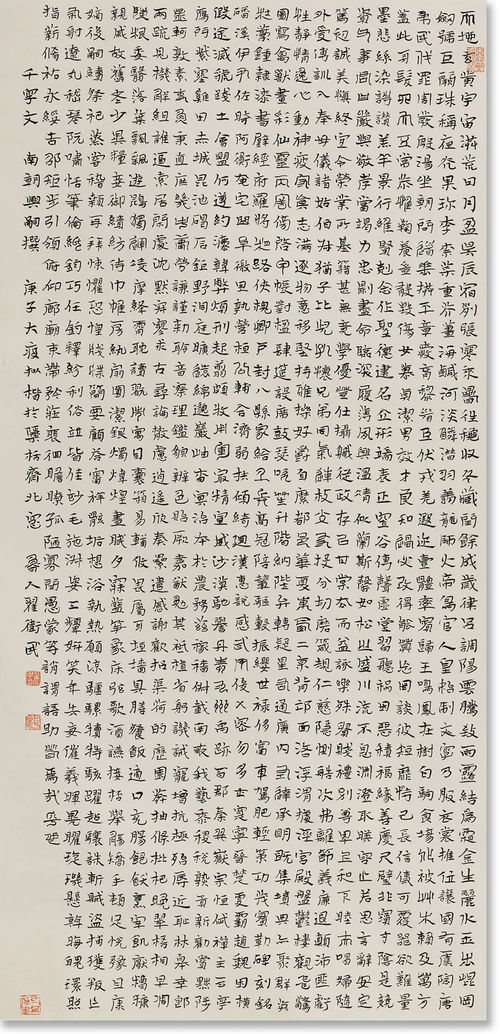 天地玄黃宇宙洪荒日月盈昃辰宿列張寒來暑往秋收冬藏閏餘成歲律呂調陽雲騰致雨露結為霜金生麗水玉出崑岡
劍號巨闕珠稱夜光果珍李柰菜重芥薑海鹹河淡鱗潛羽翔龍師火帝鳥官人皇始制文字乃服衣裳推位讓國有虞陶唐
弔民伐罪周發殷湯坐朝問道垂拱平章愛育黎首臣伏戎羌遐邇壹體率賓歸王鳴鳳在樹白駒食場化被草木賴及萬方
蓋此身髮四大五常恭惟鞠養豈敢毀傷女慕貞潔男效才良知過必改得能莫忘罔談彼短靡恃己長信使可覆器欲難量
墨悲絲染詩讚羔羊景行維賢剋念作聖德建名立形端表正空谷傳聲虛堂習聽禍因惡積福緣善慶尺璧非寶寸陰是競
資父事君曰嚴與敬孝當竭力忠則盡命臨深履薄夙興溫凊似蘭斯馨如松之盛川流不息淵澄取映容止若思言辭安定
篤初誠美慎終宜令榮業所基籍甚無竟學優登仕攝職從政存以甘棠去而益詠樂殊貴賤禮別尊卑上和下睦夫唱婦隨
外受傅訓入奉母儀諸姑伯叔猶子比兒孔懷兄弟同氣連枝交友投分切磨箴規仁慈隱惻造次弗離節義廉退顛沛匪虧
性靜情逸心動神疲守真志滿逐物意移堅持雅操好爵自縻都邑華夏東西二京背邙面洛浮渭據涇宮殿盤鬱樓觀飛驚
圖寫禽獸畫彩仙靈丙舍傍啟甲帳對楹肆筵設席鼓瑟吹笙升階納陛弁轉疑星右通廣內左達承明既集墳典亦聚群英
杜稾鍾隸漆書壁經府羅將相路俠槐卿戶封八縣家給千兵高冠陪輦驅轂振纓世祿侈富車駕肥輕策功茂實勒碑刻銘
磻溪伊尹佐時阿衡奄宅曲阜微旦孰營桓公匡合濟弱扶傾綺迴漢惠說感武丁俊乂密勿多士寔寧晉楚更霸趙魏困橫
假途滅虢踐土會盟何遵約法韓弊煩刑起翦頗牧用軍最精宣威沙漠馳譽丹青九州禹跡百郡秦并嶽宗恒岱禪主云亭
雁門紫塞雞田赤城昆池碣石鉅野洞庭曠遠綿邈巖岫杳冥治本於農務茲稼穡俶載南畝我藝黍稷稅熟貢新勸賞黜陟
孟軻敦素史魚秉直庶幾中庸勞謙謹敕聆音察理鑑貌辨色貽厥嘉猷勉其祗植省躬譏誡寵增抗極殆辱近恥林皋幸即
兩疏見機解組誰逼索居閒處沉默寂寥求古尋論散慮逍遙欣奏累遣慼謝歡招渠荷的歷園莽抽條枇杷晚翠梧桐早凋
陳根委翳落葉飄颻遊鵾獨運凌摩絳霄耽讀翫市寓目囊箱易輶攸畏屬耳垣牆具膳餐飯適口充腸飽飫烹宰飢厭糟糠
親戚故舊老少異糧妾御績紡侍巾帷房紈扇圓潔銀燭煒煌晝眠夕寐藍筍象床弦歌酒讌接杯舉觴矯手頓足悅豫且康
嫡後嗣續祭祀烝嘗稽顙再拜悚懼恐惶牋牒簡要顧答審詳骸垢想浴執熱願涼驢騾犢特駭躍超驤誅斬賊盜捕獲叛亡
布射遼丸嵇琴阮嘯恬筆倫紙鈞巧任釣釋紛利俗並皆佳妙毛施淑姿工顰妍笑年矢每催曦暉朗曜璇璣懸斡晦魄環照
指薪修祜永綏吉劭矩步引領俯仰廊廟束帶矜莊徘徊瞻眺孤陋寡聞愚蒙等誚謂語助者焉哉乎也
千字文 南朝周興嗣撰 庚子大疫拟楷於驥枥齋北窗 魯人翟衛民